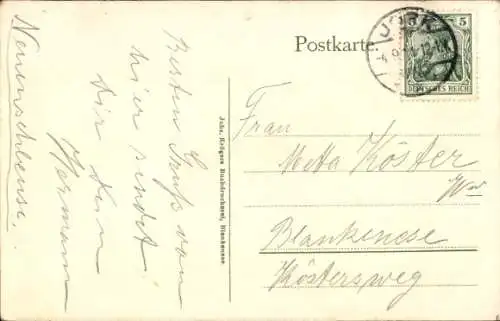 Postkarte.
JORK
5 5
DEUTSCHES REICH
Neuenschleuse.
Besten Gruß von
hier sendet
Dir Dein
Hermann
Johs. Krögers Buchdruckerei, Blankenese
Frau
Metta Köster
Ww
Blankenese
Köstersweg